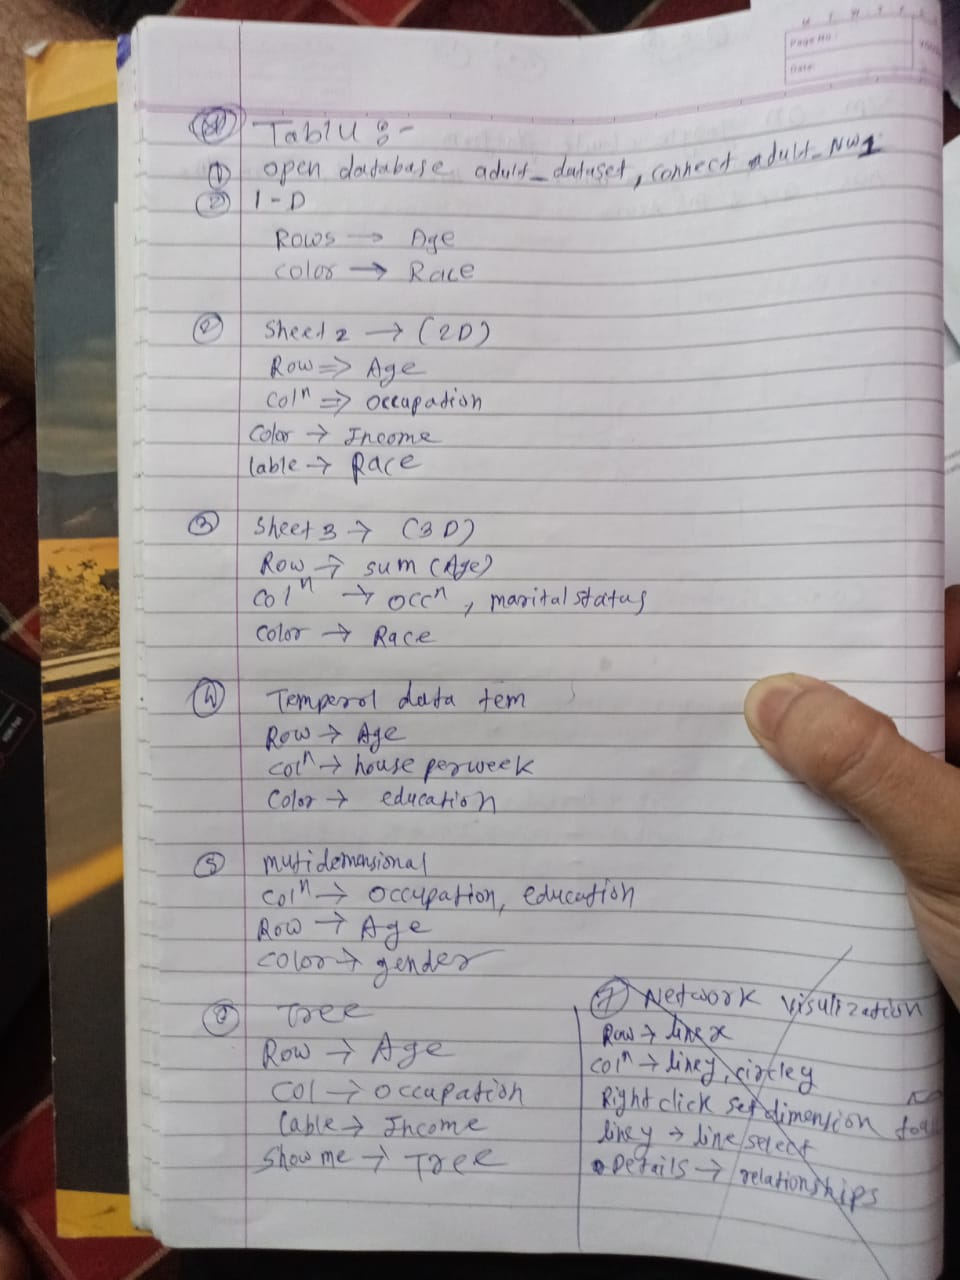 Page No:
Date:
Tablu :-
① open database adult_dataset, connect adult_NW1
② 1-D
Rows → Age
color → Race
② Sheet 2 → (2D)
Row ⇒ Age
Colⁿ ⇒ occupation
Color → Income
lable → Race
③ Sheet 3 → (3D)
Row → sum (Age)
Colⁿ → occⁿ, marital status
Color → Race
④ Temperol data tem
Row → Age
Colⁿ → house perweek
Color → education
⑤ mutidemensional
Colⁿ → occupation, education
Row → Age
Color → gender
Tree
Row → Age
Col → occupation
Lable → Income
Show me → Tree
⑦ Network visulization
Row → line x
Colⁿ → line y, circle y
Right click set dimension
line y → line select
Details → relationships